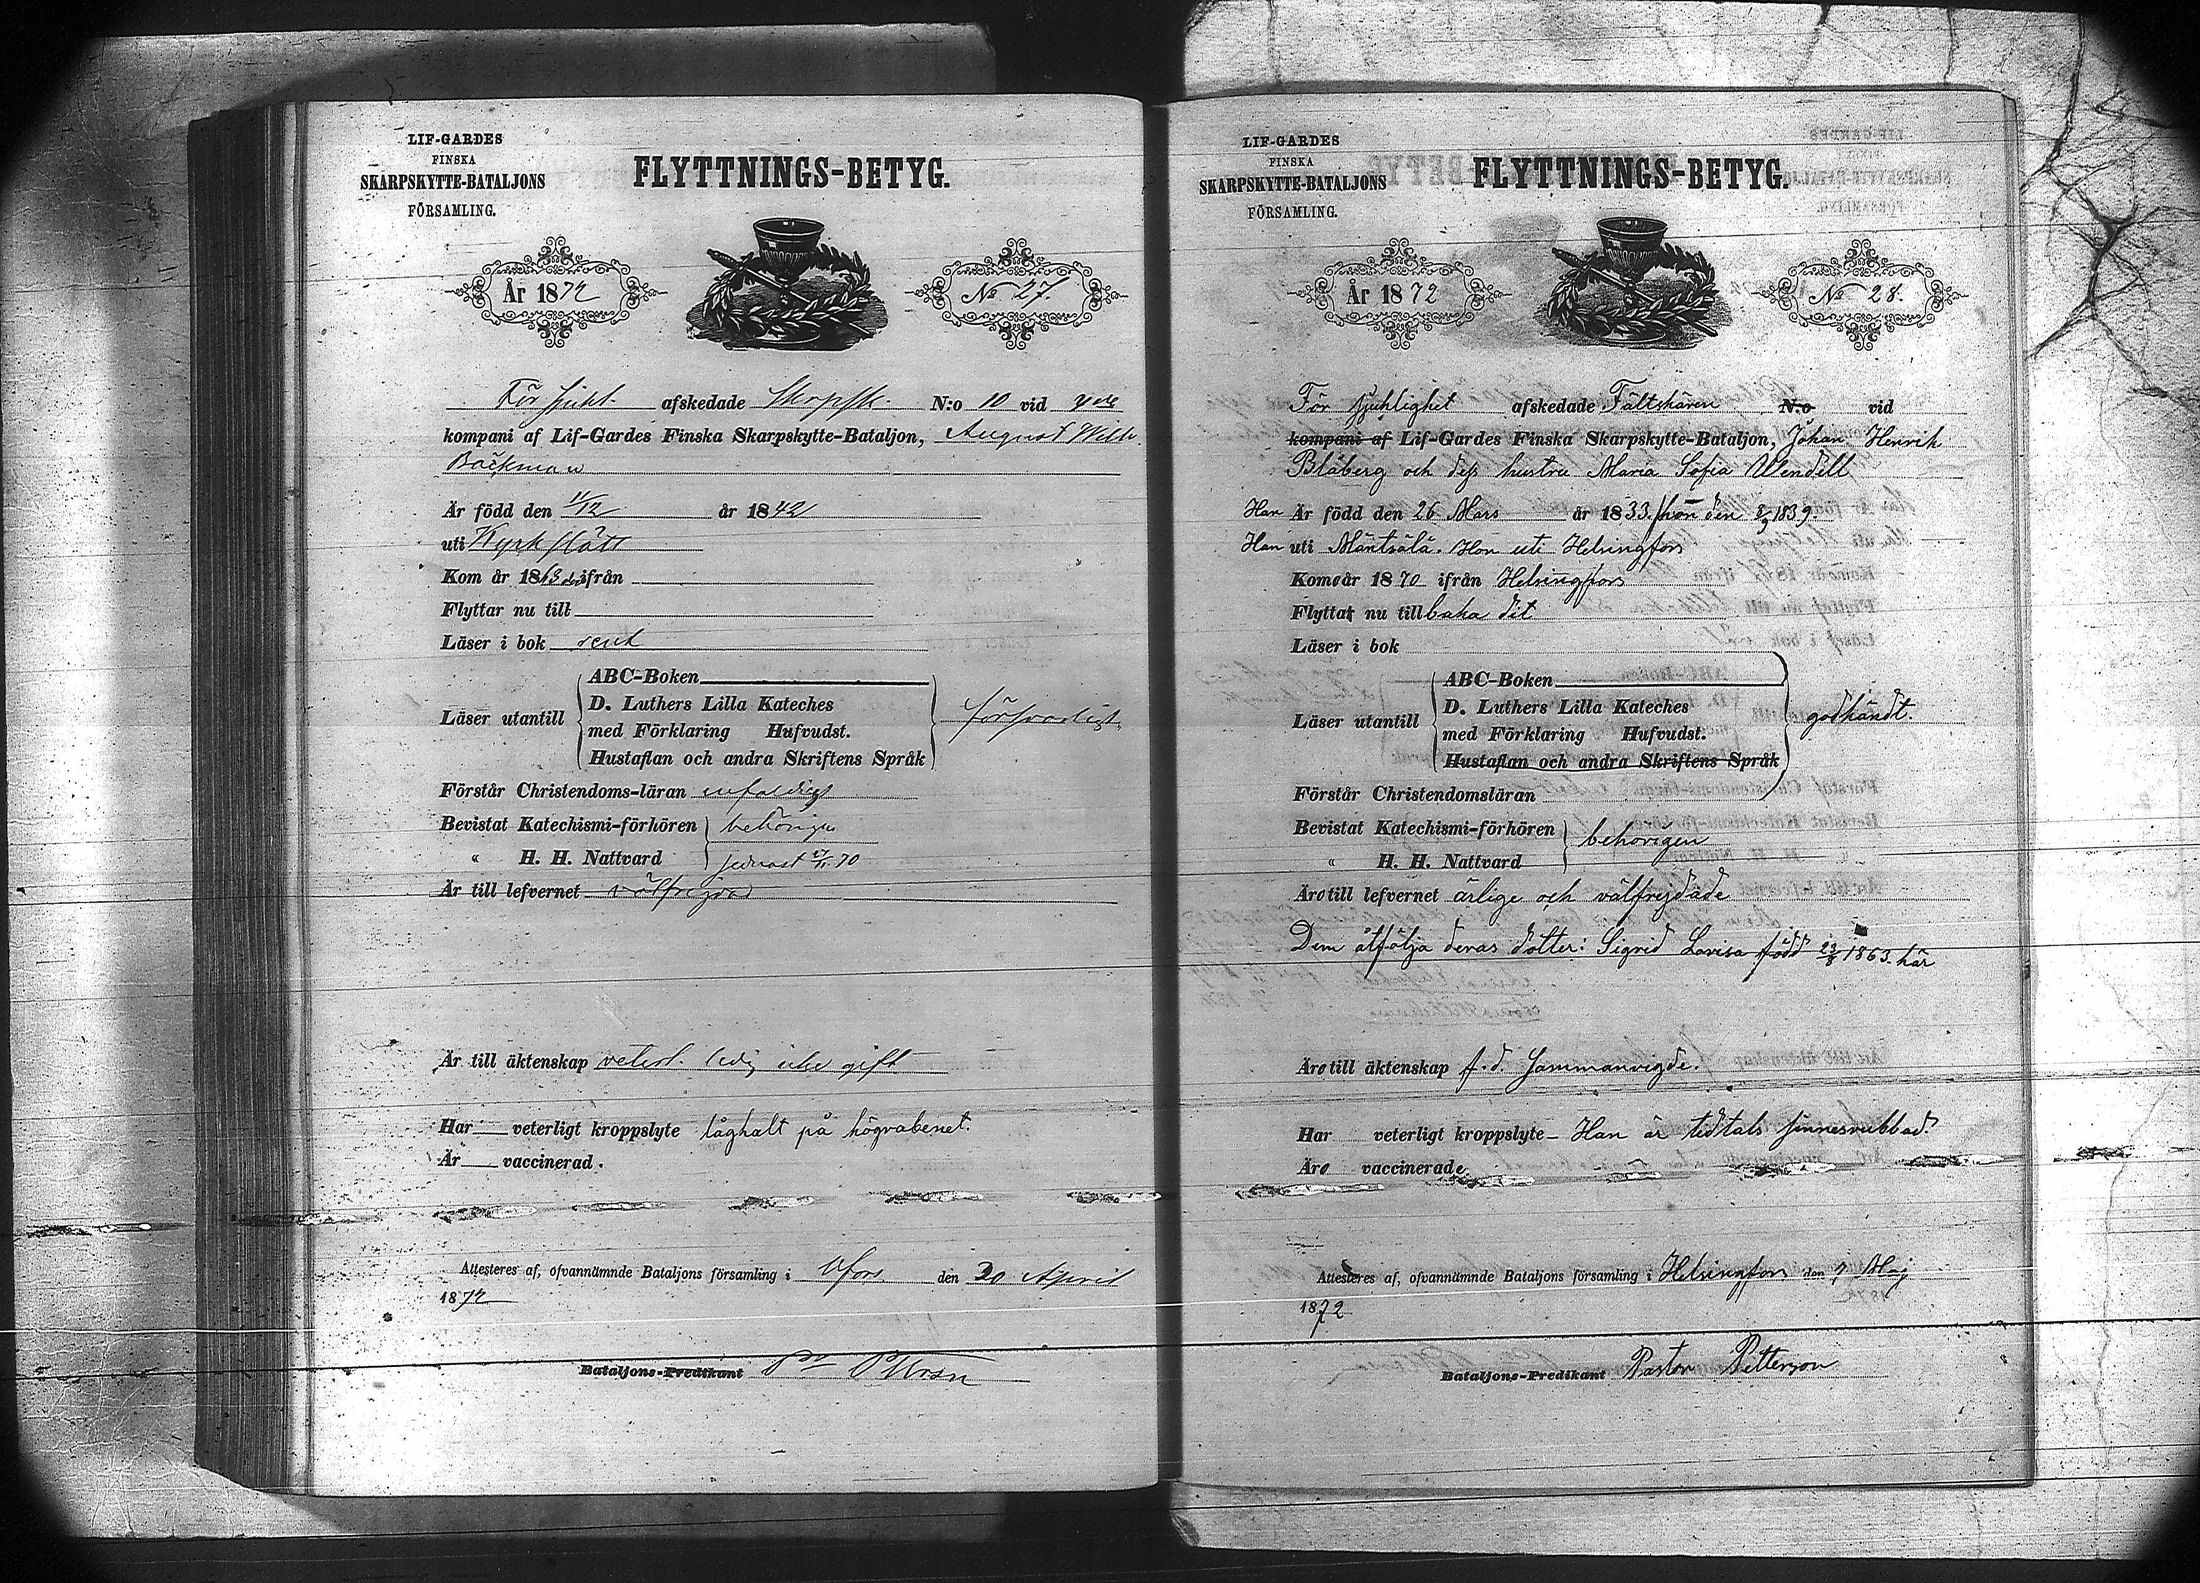 LIF-GARDES
FINSKA
SKARPSKYTTE-BATALJONS
FÖRSAMLING.
FLYTTNINGS-BETYG.
År 1872
No 27.
För sjukl. afskedade Skarpsk. N:o 10 vid 4de
kompani af Lif-Gardes Finska Skarpskytte-Bataljon, August Wilh.
Bäckman
Är född den 11/12 år 1842
uti Kyrkslätt
Kom år 1863 ifrån
Flyttar nu till
Läser i bok rent
Läser utantill
ABC-Boken
D. Luthers Lilla Kateches
med Förklaring Hufvudst.
Hustaflan och andra Skriftens Språk
försvarligt
Förstår Christendoms-läran enfaldigt
Bevistat Katechismi-förhören behörigen
" H. H. Nattvard senast 70
Är till lefvernet välfrejdad
Är till äktenskap veterl. ledig icke gift
Har veterligt kroppslyte låghalt på högra benet.
Är vaccinerad.
Attesteres af, ofvannämnde Bataljons församling i Hfors den 30 April
1872
Bataljons-Predikant
LIF-GARDES
FINSKA
SKARPSKYTTE-BATALJONS
FÖRSAMLING.
FLYTTNINGS-BETYG.
År 1872
No 28.
För sjuklighet afskedade Fältskären N:o vid
kompani af Lif-Gardes Finska Skarpskytte-Bataljon, Johan Henrik
Blåberg och dess hustru Maria Sofia Wendell
Han Är född den 26 Mars år 1833, hon den 8/9 1839.
Han uti Mäntsälä. Hon uti Helsingfors
Komo år 1870 ifrån Helsingfors
Flyttar nu tillbaka dit
Läser i bok
Läser utantill
ABC-Boken
D. Luthers Lilla Kateches
med Förklaring Hufvudst.
Hustaflan och andra Skriftens Språk
godkändt.
Förstår Christendomsläran
Bevistat Katechismi-förhören
" H. H. Nattvard
behörigen
Äro till lefvernet ärlige och välfrejdade
Dem åtfölja deras dotter: Sigrid Lovisa född 23/8 1863. här
Äro till äktenskap f. d. Sammanvigde.
Har veterligt kroppslyte - Han är tidtals sinnesrubbad.
Äro vaccinerade
Attesteres af, ofvannämnde Bataljons församling i Helsingfors den 7 Maj
1872
Bataljons-Predikant Pastor Petterson